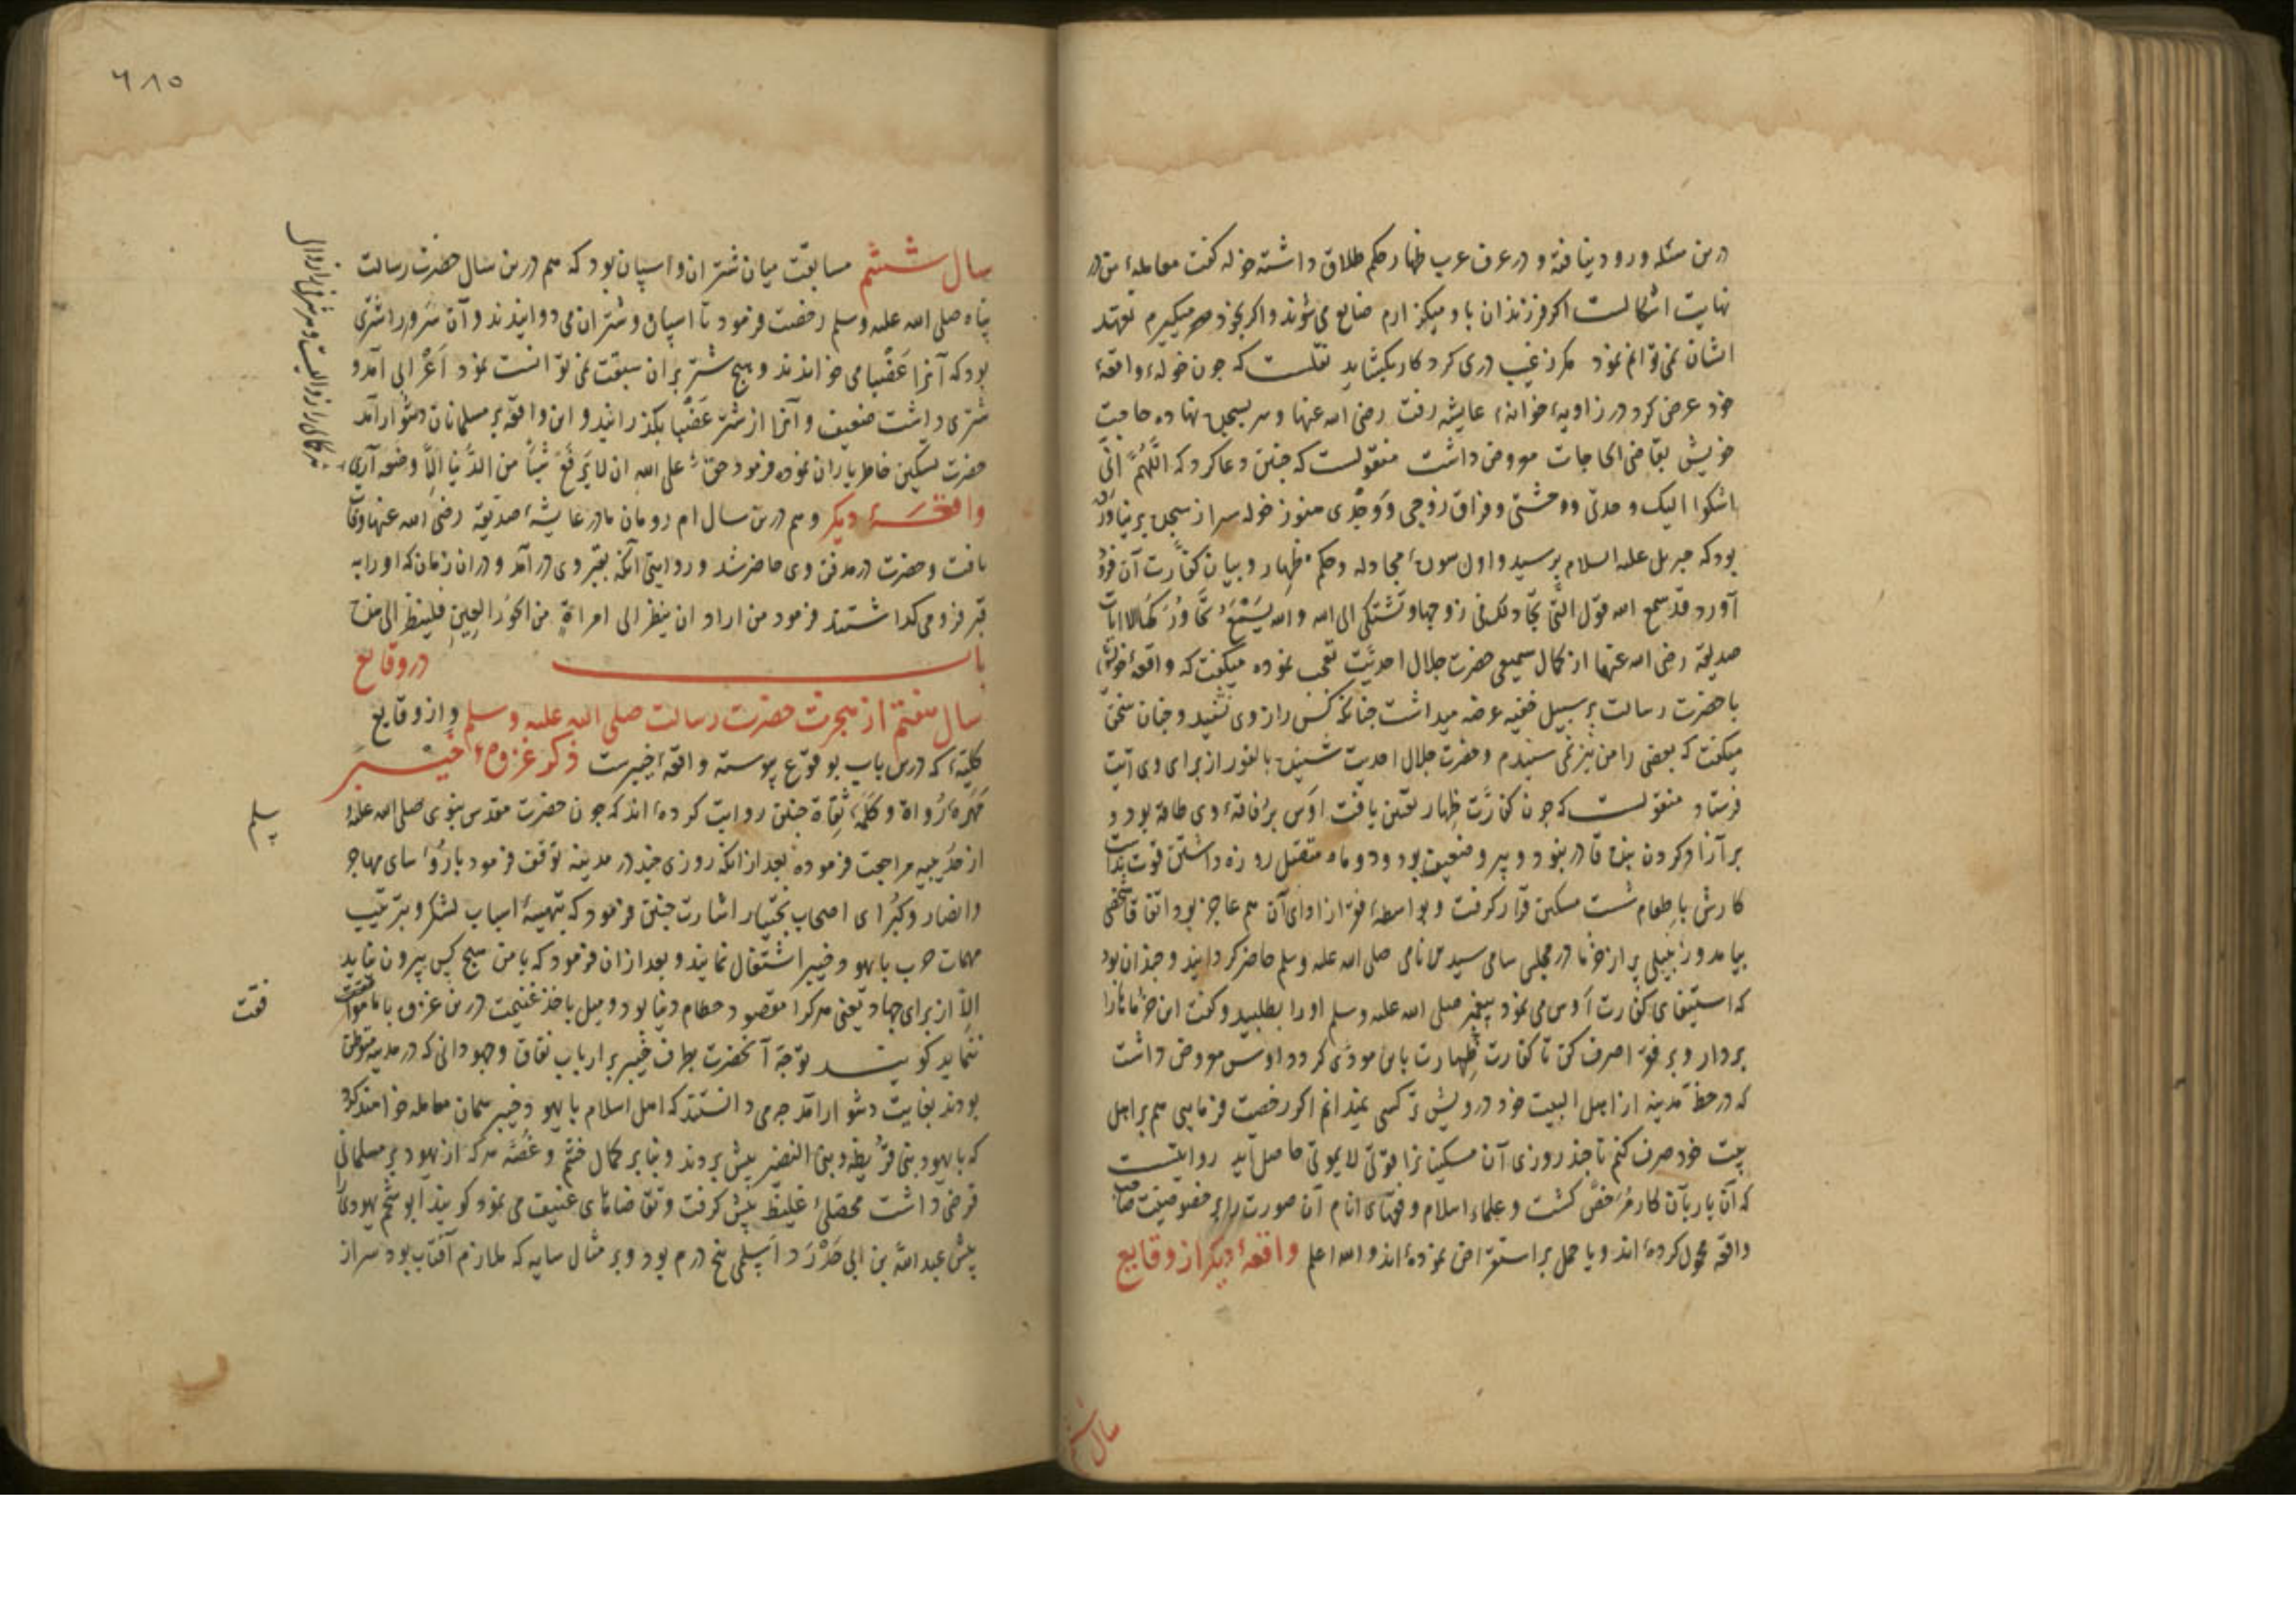 درین مسئله ورود نیافته و در عرف عرب ظهار حکم طلاق داشته خوله کفت معامله من در
نهایت اشکالست اکر فرزندان باو میکزارم ضایع می شوند و اکر بخود میکیرم تعهد
ایشان نمی توانم نمود مکر از غیب دری کرد کار بکشاید نقلست که جون خوله واقعهٔ
خود عرض کرد در زاویهٔ خانهٔ عایشه رفت رضی الله عنها و سر بسجده نهاده حاجت
خویش بقاضی الحاجات معروض داشت منقولست که جنین دعا کرد که اللهم انی
اشکوا الیک وحدتی و وحشتی و فراق زوجی و وجدی هنوز خوله سر از سجده بر نیاورده
بود که جبریل علیه السلام برسید و اول سورهٔ مجادله و حکم ظهار و بیان کفارت آن فرود
آورد قد سمع الله قول التی تجادلک فی زوجها و تشتکی الی الله والله یسمع تحاورکما الایات
صدیقه رضی الله عنها از کمال سمیعی حضرت جلال احدیت تعجب نموده میکفت که واقعهٔ خویش
با حضرت رسالت بر سبیل خفیه عرضه میداشت جنانکه کس راز وی نشنید و جنان سخن
میکفت که بعضی را من نیز نمی شنیدم و حضرت جلال احدیت شنید بالفور از برای وی آیت
فرستاد منقولست که جون کفارت ظهار تعین یافت اوس بر فاقه وی طاقه بود و
بر آزاد کردن بنده قادر نبود و پیر و ضعیف بود و دو ماه متصل روزه داشتن قوت نداشت
کارش با طعام شست مسکین قرار کرفت و بواسطهٔ فقر از ادای آن هم عاجز بود اتفاقا شخصی
بیامد و زنبیلی پر از خرما در مجلس سامی سید نامی صلی الله علیه وسلم حاضر کردانید و جندان بود
که استیفای کفارت اوس می نمود پیغمبر صلی الله علیه وسلم اورا بطلبید و کفت این خرماها را
بردار و بر فقرا صرف کن تا کفارت ظهارت باین مودی کردد اوس معروض داشت
که در خطهٔ مدینه از اهل البیت خود درویش تر کسی نمیدانم اکر رخصت فرمایی هم بر اهل
بیت خود صرف کنم تا جند روزی آن مسکینانرا قوتی لایموتی حاصل آید روایتست
که آن یار بآن کار مرخص کشت و علماء اسلام و فقهای انام آن صورت را بر خصوصیت صاحب
واقعه محمول کرده اند و یا حمل بر استقراض نموده اند والله اعلم واقعهٔ دیکر از وقایع
سال ششم
٦٨٥
سال ششم مسابقت میان شتران و اسپان بود که هم درین سال حضرت رسالت
پناه صلی الله علیه وسلم رخصت فرمود تا اسپان و شتران می دوانیدند و آن سرور را شتری
بود که آنرا عضبا می خواندند و هیچ شتر بران سبقت نمی توانست نمود اعرابی آمد و
شتری داشت ضعیف و آنرا از شتر عضبا بکذرانید و این واقعه بر مسلمانان دشوار آمد
حضرت تسکین خاطر یاران نموده فرمود حق علی الله ان لا یرفع شیئا من الدنیا الا وضعه آری
واقعهٔ دیکر و هم درین سال ام رومان مادر عایشهٔ صدیقه رضی الله عنها وفات
یافت و حضرت در مدفن وی حاضر شد و روایتی آنکه بقبر وی درآمد و دران زمان که اورا به
قبر فرو می کذاشتند فرمود من اراد ان ینظر الی امراة من الحور العین فلینظر الی هذه
باب در وقایع
سال هفتم از هجرت حضرت رسالت صلی الله علیه وسلم و از وقایع
کلیه که درین باب بوقوع پیوسته واقعهٔ خیبرست ذکر غزوهٔ خیبر
مهرهٔ رواة و کملهٔ ثقاة جنین روایت کرده اند که جون حضرت مقدس نبوی صلی الله علیه
وسلم
از حدیبیه مراجعت فرموده بعد از انکه روزی جند در مدینه توقف فرمود با رؤسای مهاجر
و انصار و کبرای اصحاب بختیار اشارت جنین فرمود که بتهیئهٔ اسباب لشکر و ترتیب
مهمات حرب با یهود خیبر اشتغال نمایند و بعد از ان فرمود که با من هیچ کس بیرون نیاید
الا از برای جهاد یعنی هر کرا مقصود حطام دنیا بود و میل باخذ غنیمت درین غزوه با ما موافقت
ننماید کویند توجه آنحضرت بطرف خیبر بر ارباب نفاق و یهودانی که در مدینه متوطن
بودند بغایت دشوار آمد جه می دانستند که اهل اسلام با یهود خیبر همان معامله خواهند کرد
که با یهود بنی قریظه و بنی النضیر پیش بردند و بنا بر کمال خشم و غصه هر که از یهود بر مسلمانی
قرض داشت محصلی غلیظ پیش کرفت و تقاضاهای عنیف می نمود کویند ابو شحم یهودی را
پیش عبد الله بن ابی حدرد اسلمی پنج درم بود و بر مثال سایه که ملازم آفتاب بود سر از